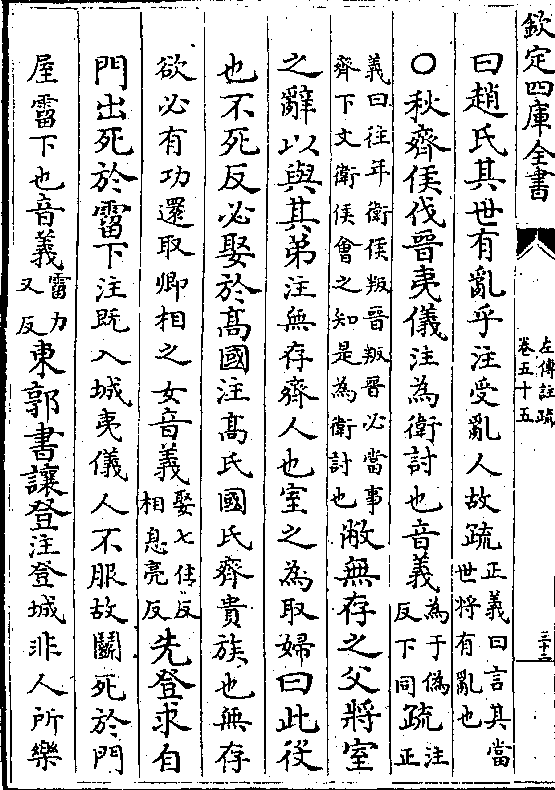 欽定四庫全書
左傳註疏
卷五十五
曰趙氏其世有亂乎注受亂人故疏正義曰言其當世將有亂也
○秋齊侯伐晉夷儀注為衛討也音義為于偽反下同疏注正
義曰往年衛侯叛晉叛晉必當事齊下文衛侯會之知是為衛討也敝無存之父將室
之辭以與其弟注無存齊人也室之為取婦曰此役
也不死反必娶於髙國注髙氏國氏齊貴族也無存
欲必有功還取卿相之女音義娶七住反相息亮反先登求自
門出死於霤下注既入城夷儀人不服故鬭死於門
屋霤下也音義霤力又反東郭書讓登注登城非人所樂